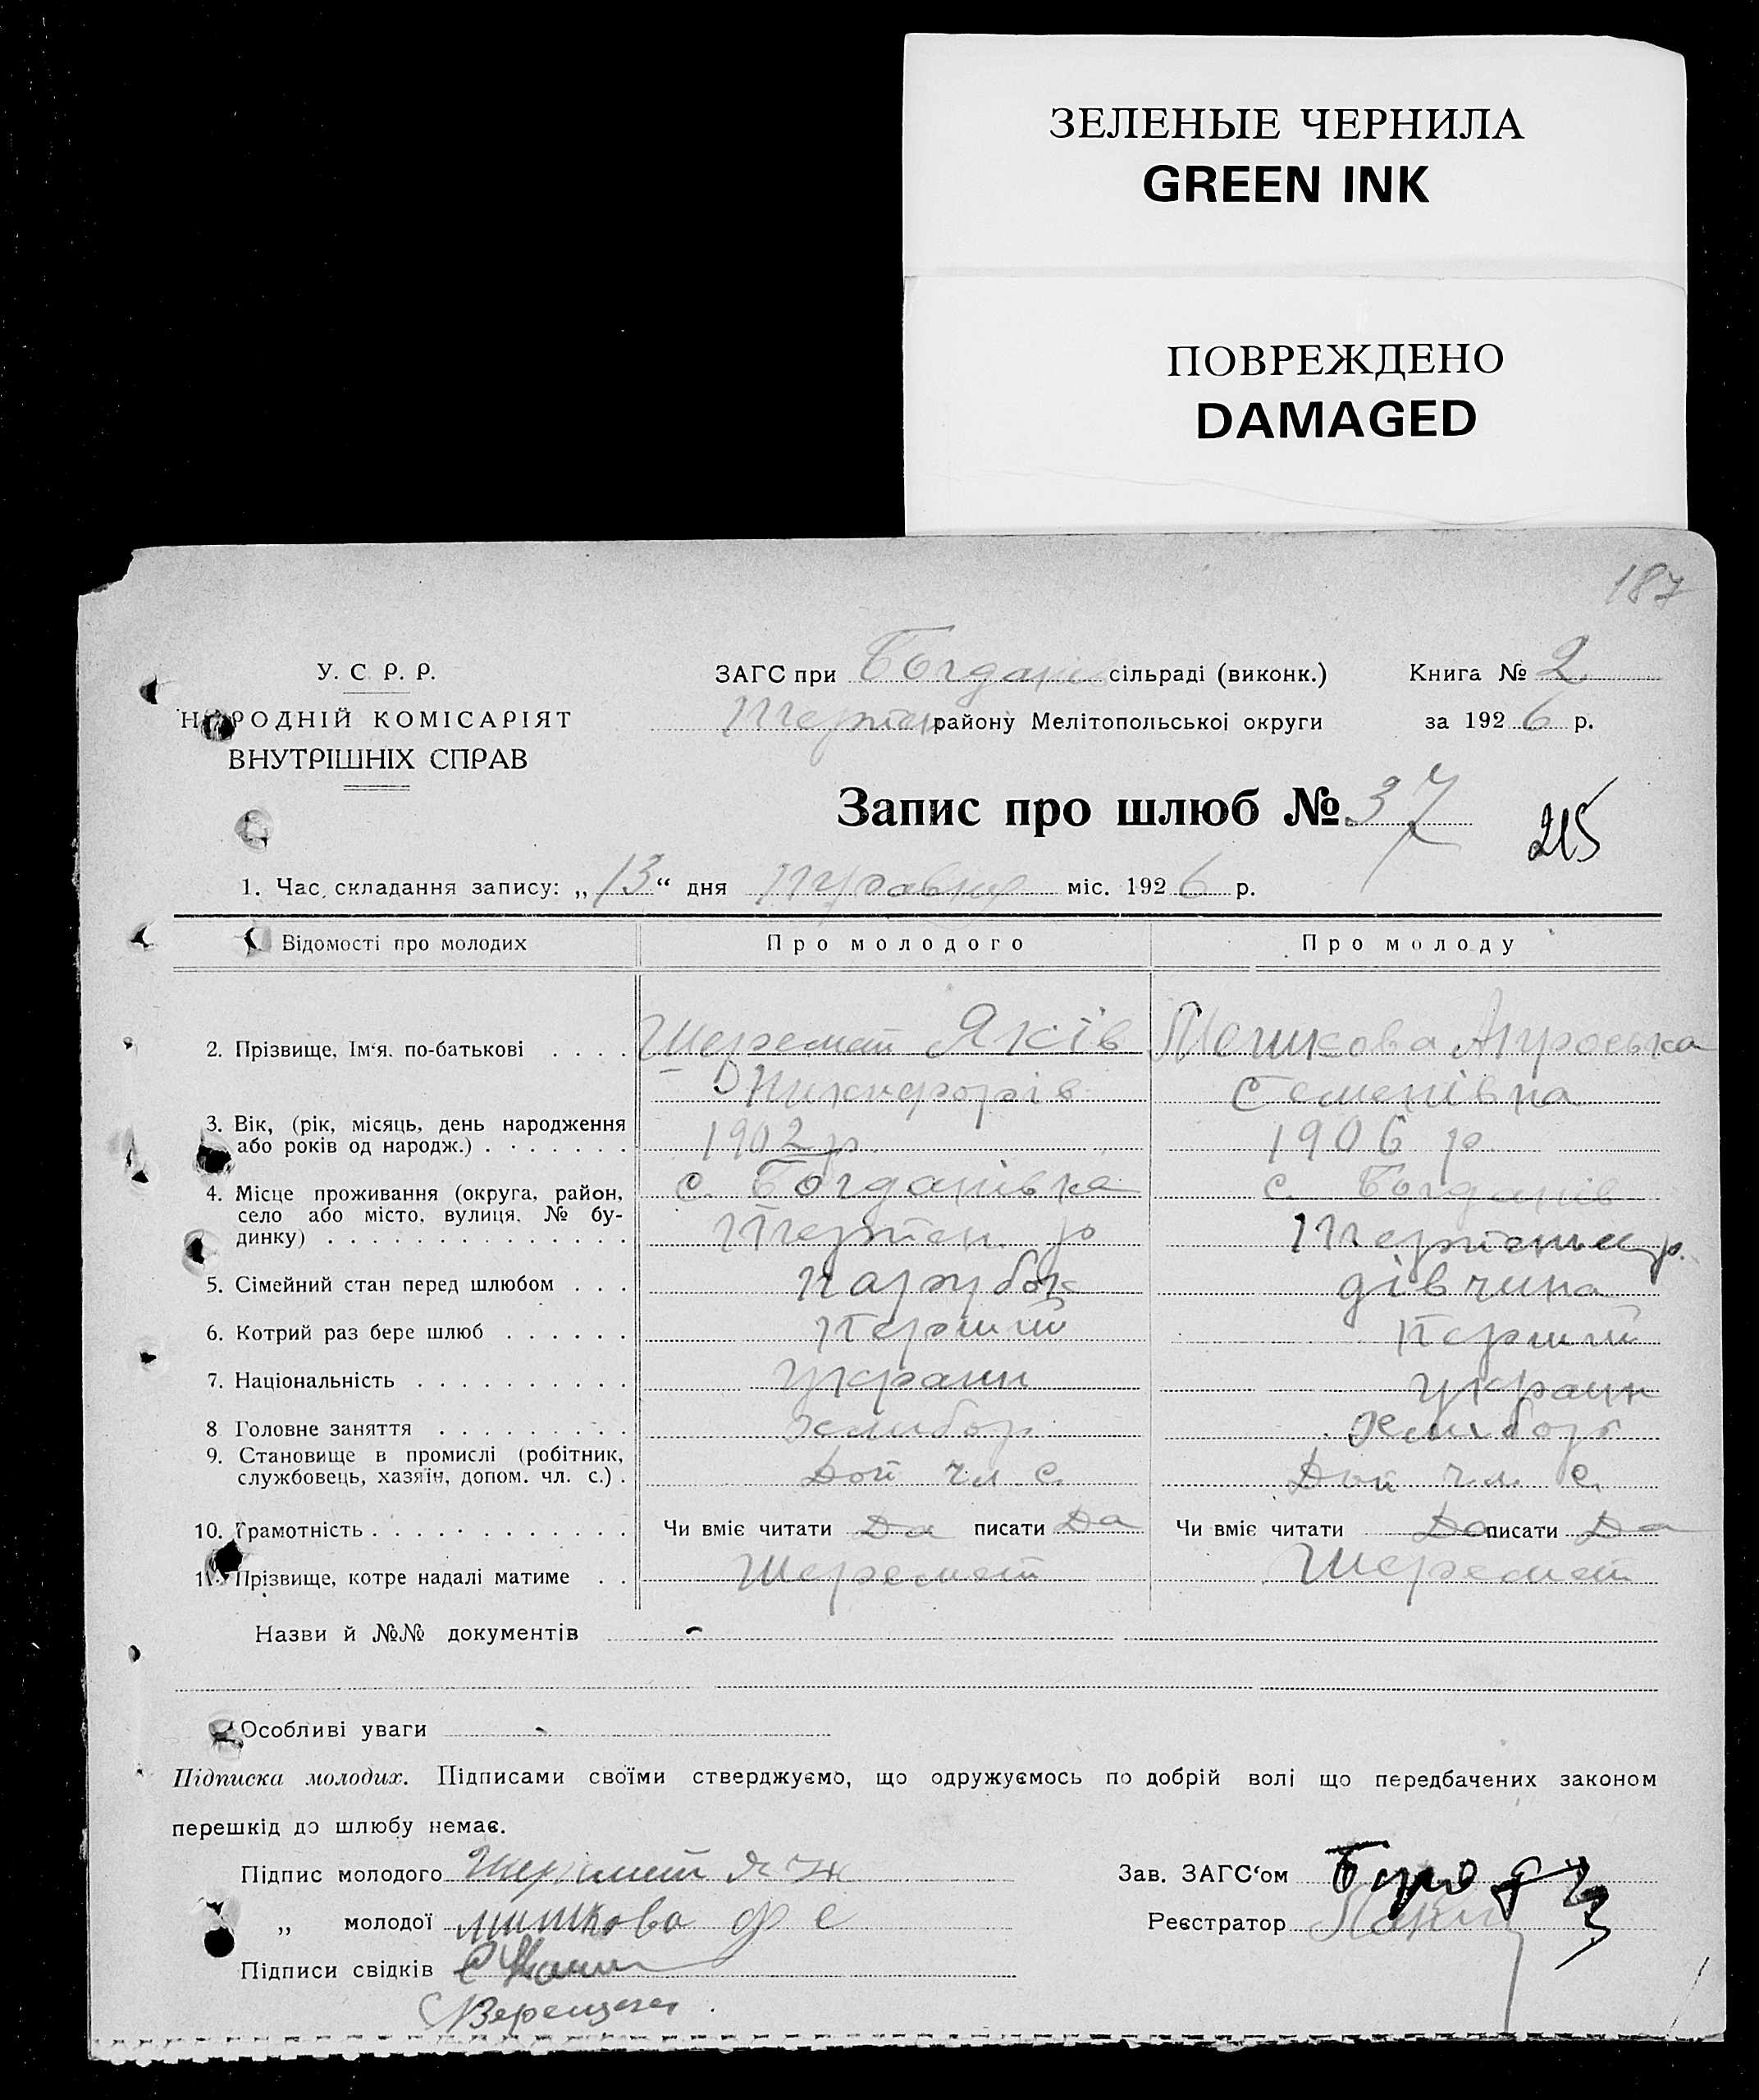 ЗЕЛЕНЫЕ ЧЕРНИЛА
GREEN INK
ПОВРЕЖДЕНО
DAMAGED
187
У. С. Р. Р.
НАРОДНІЙ КОМІСАРІЯТ
ВНУТРІШНІХ СПРАВ
ЗАГС при Богданів сільраді (виконк.) Книга № 2
Терпен району Мелітопольської округи за 1926 р.
Запис про шлюб № 37
215
1. Час складання запису: „13“ дня міс. 1926 р.
Відомості про молодих Про молодого Про молоду
2. Прізвище, Ім‘я. по-батькові . . . . Шеремет Яків Мошкова
Никифорів Семенівна
3. Вік, (рік, місяць, день народження
або років од народж.) . . . . . . . 1902 р. 1906 р.
4. Місце проживання (округа, район,
село або місто, вулиця, № бу-
динку) . . . . . . . . . . . . . . с. Богданівка Терпен. р с. Богданів Терпеньев р.
5. Сімейний стан перед шлюбом . . . парубок дівчина
6. Котрий раз бере шлюб . . . . . . Перший Перший
7. Національність . . . . . . . . . . украин украин
8 Головне заняття . . . . . . . . . хлибор хлибор
9. Становище в промислі (робітник,
службовець, хазяїн, допом. чл. с.) . Доп чл с. Доп чл. с.
10. Грамотність . . . . . . . . . . . . Чи вміє читати Да писати Да Чи вміє читати Да писати Да
11. Прізвище, котре надалі матиме . . Шеремет Шеремет
Назви й №№ документів -
Особливі уваги -
Підписка молодих. Підписами своїми стверджуємо, що одружуємось по добрій волі що передбачених законом
перешкід до шлюбу немає.
Підпис молодого Шеремет Я Н Зав. ЗАГС‘ом
„ молодої Мишкова ф с Реєстратор
Підписи свідків